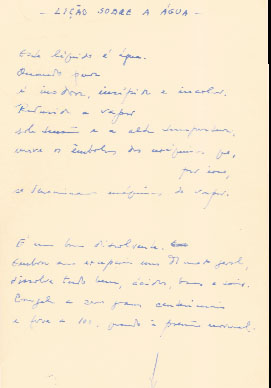 — LIÇÃO SOBRE A ÁGUA —
Este líquido é água.
Quando pura
é inodora, insípida e incolor.
Reduzida a vapor
sob tensão e a alta temperatura,
move os êmbolos das máquinas que,
por isso,
se denominam máquinas de vapor.
É um bom dissolvente.
Embora com excepções mas de modo geral,
dissolve tudo bem, ácidos, bases e sais.
Congela a zero graus centesimais
e ferve a 100, quando à pressão normal.